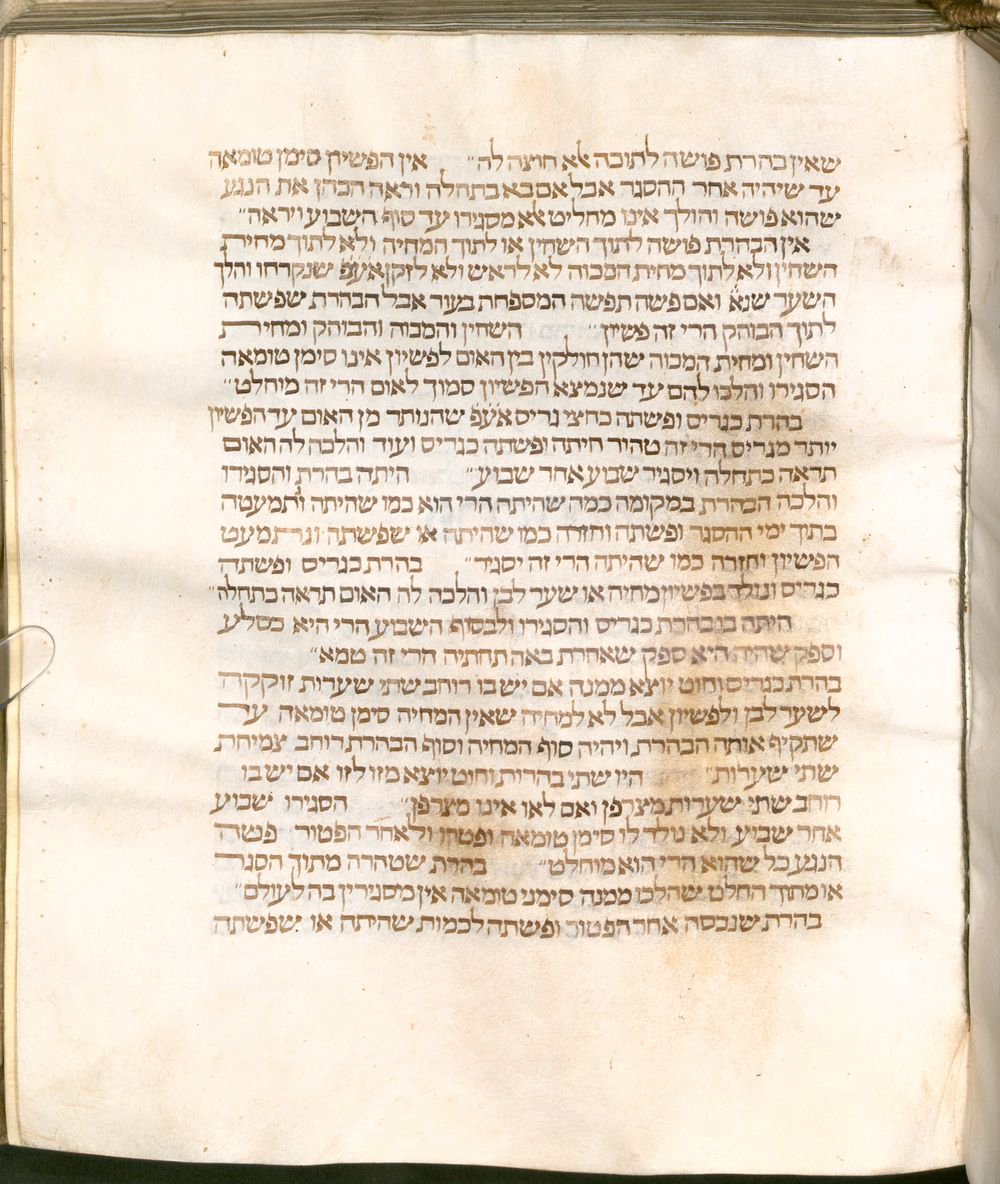 שאין בהרת פושה לתוכה אלא חוצה לה״ אין הפשיון סימן טומאה
עד שיהיה אחר ההסגר אבל אם בא בתחלה וראה הכהן את הנגע
שהוא פושה והולך אינו מחליט אלא מסגירו עד סוף השבוע ויראה״
אין הבהרת פושה לתוך השחין או לתוך המחיה ולא לתוך מחית
השחין ולא לתוך מחית המכוה לא לראש ולא לזקן אעפ שנקרחו והלך
השער שנא ואם פשה תפשה המספחת בעור אבל הבהרת שפשתה
לתוך הבוהק הרי זה פשיון״ השחין והמכוה והבוהק ומחית
השחין ומחית המכוה שהן חולקין בין האום לפשיון אינו סימן טומאה
הסגירו והלכו להם עד שנמצא הפשיון סמוך לאום הרי זה מוחלט״
בהרת כגריס ופשתה כחצי גריס אעפ שהנותר מן האום עד הפשיון
יותר מגריס הרי זה טהור היתה ופשתה כגריס ועוד והלכה לה האום
תראה כתחלה ויסגיר שבוע אחר שבוע״ היתה בהרת והסגירו
והלכה הבהרת במקומה כמה שהיתה הרי הוא כמו שהיתה ותמעטה
בתוך ימי ההסגר ופשתה וחזרה כמו שהיתה או שפשתה ונתמעט
הפשיון וחזרה כמו שהיתה הרי זה יסגיר״ בהרת כגריס ופשתה
כגריס ונולד בפשיון מחיה או שער לבן והלכה לה האום תראה בתחלה״
היתה בו בהרת כגריס והסגירו ולבסוף השבוע הרי היא כסלע
וספק שהיה היא ספק שאחרת באה תחתיה הרי זה טמא״
בהרת כגריס וחוט יוצא ממנה אם יש בו רוחב שתי שערות זוקקה
לשער לבן ולפשיון אבל לא למחיה שאין המחיה סימן טומאה עד
שתקיף אותה הבהרת ויהיה סוף המחיה וסוף הבהרת רוחב צמיחת
שתי שערות״ היו שתי בהרות וחוט יוצא מזו לזו אם יש בו
רוחב שתי שערות מצרפן ואם לאו אינו מצרפן״ הסגירו שבוע
אחר שבוע ולא נולד לו סימן טומאה ופטרו ולאחר הפטור פשה
הנגע כל שהוא הרי הוא מוחלט״ בהרת שטהרה מתוך הסגר
או מתוך החלט שהלכו ממנה סימני טומאה אין מסגירין בה לעולם״
בהרת שנכנסה אחר הפטור ופשתה לכמות שהיתה או שפשתה